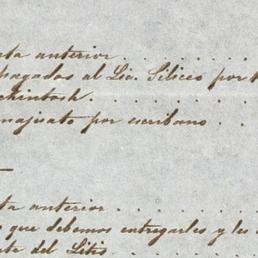 ta anterior . . . . .
pagados al Lic. Siliceo por
ckintosh . . . . . .
majisato por escribano .
ta anterior . . . . .
que debemos entregarles y les
te del Litis . . . . .